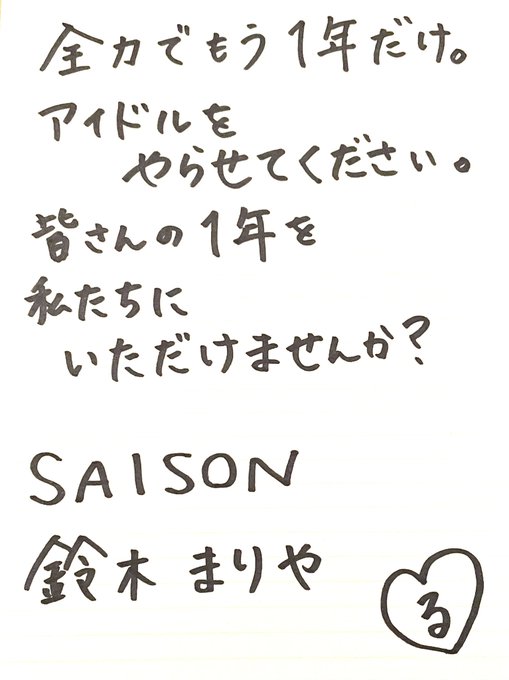 全力でもう1年だけ。
アイドルを
やらせてください。
皆さんの1年を
私たちに
いただけませんか?
SAISON
鈴木まりや
る